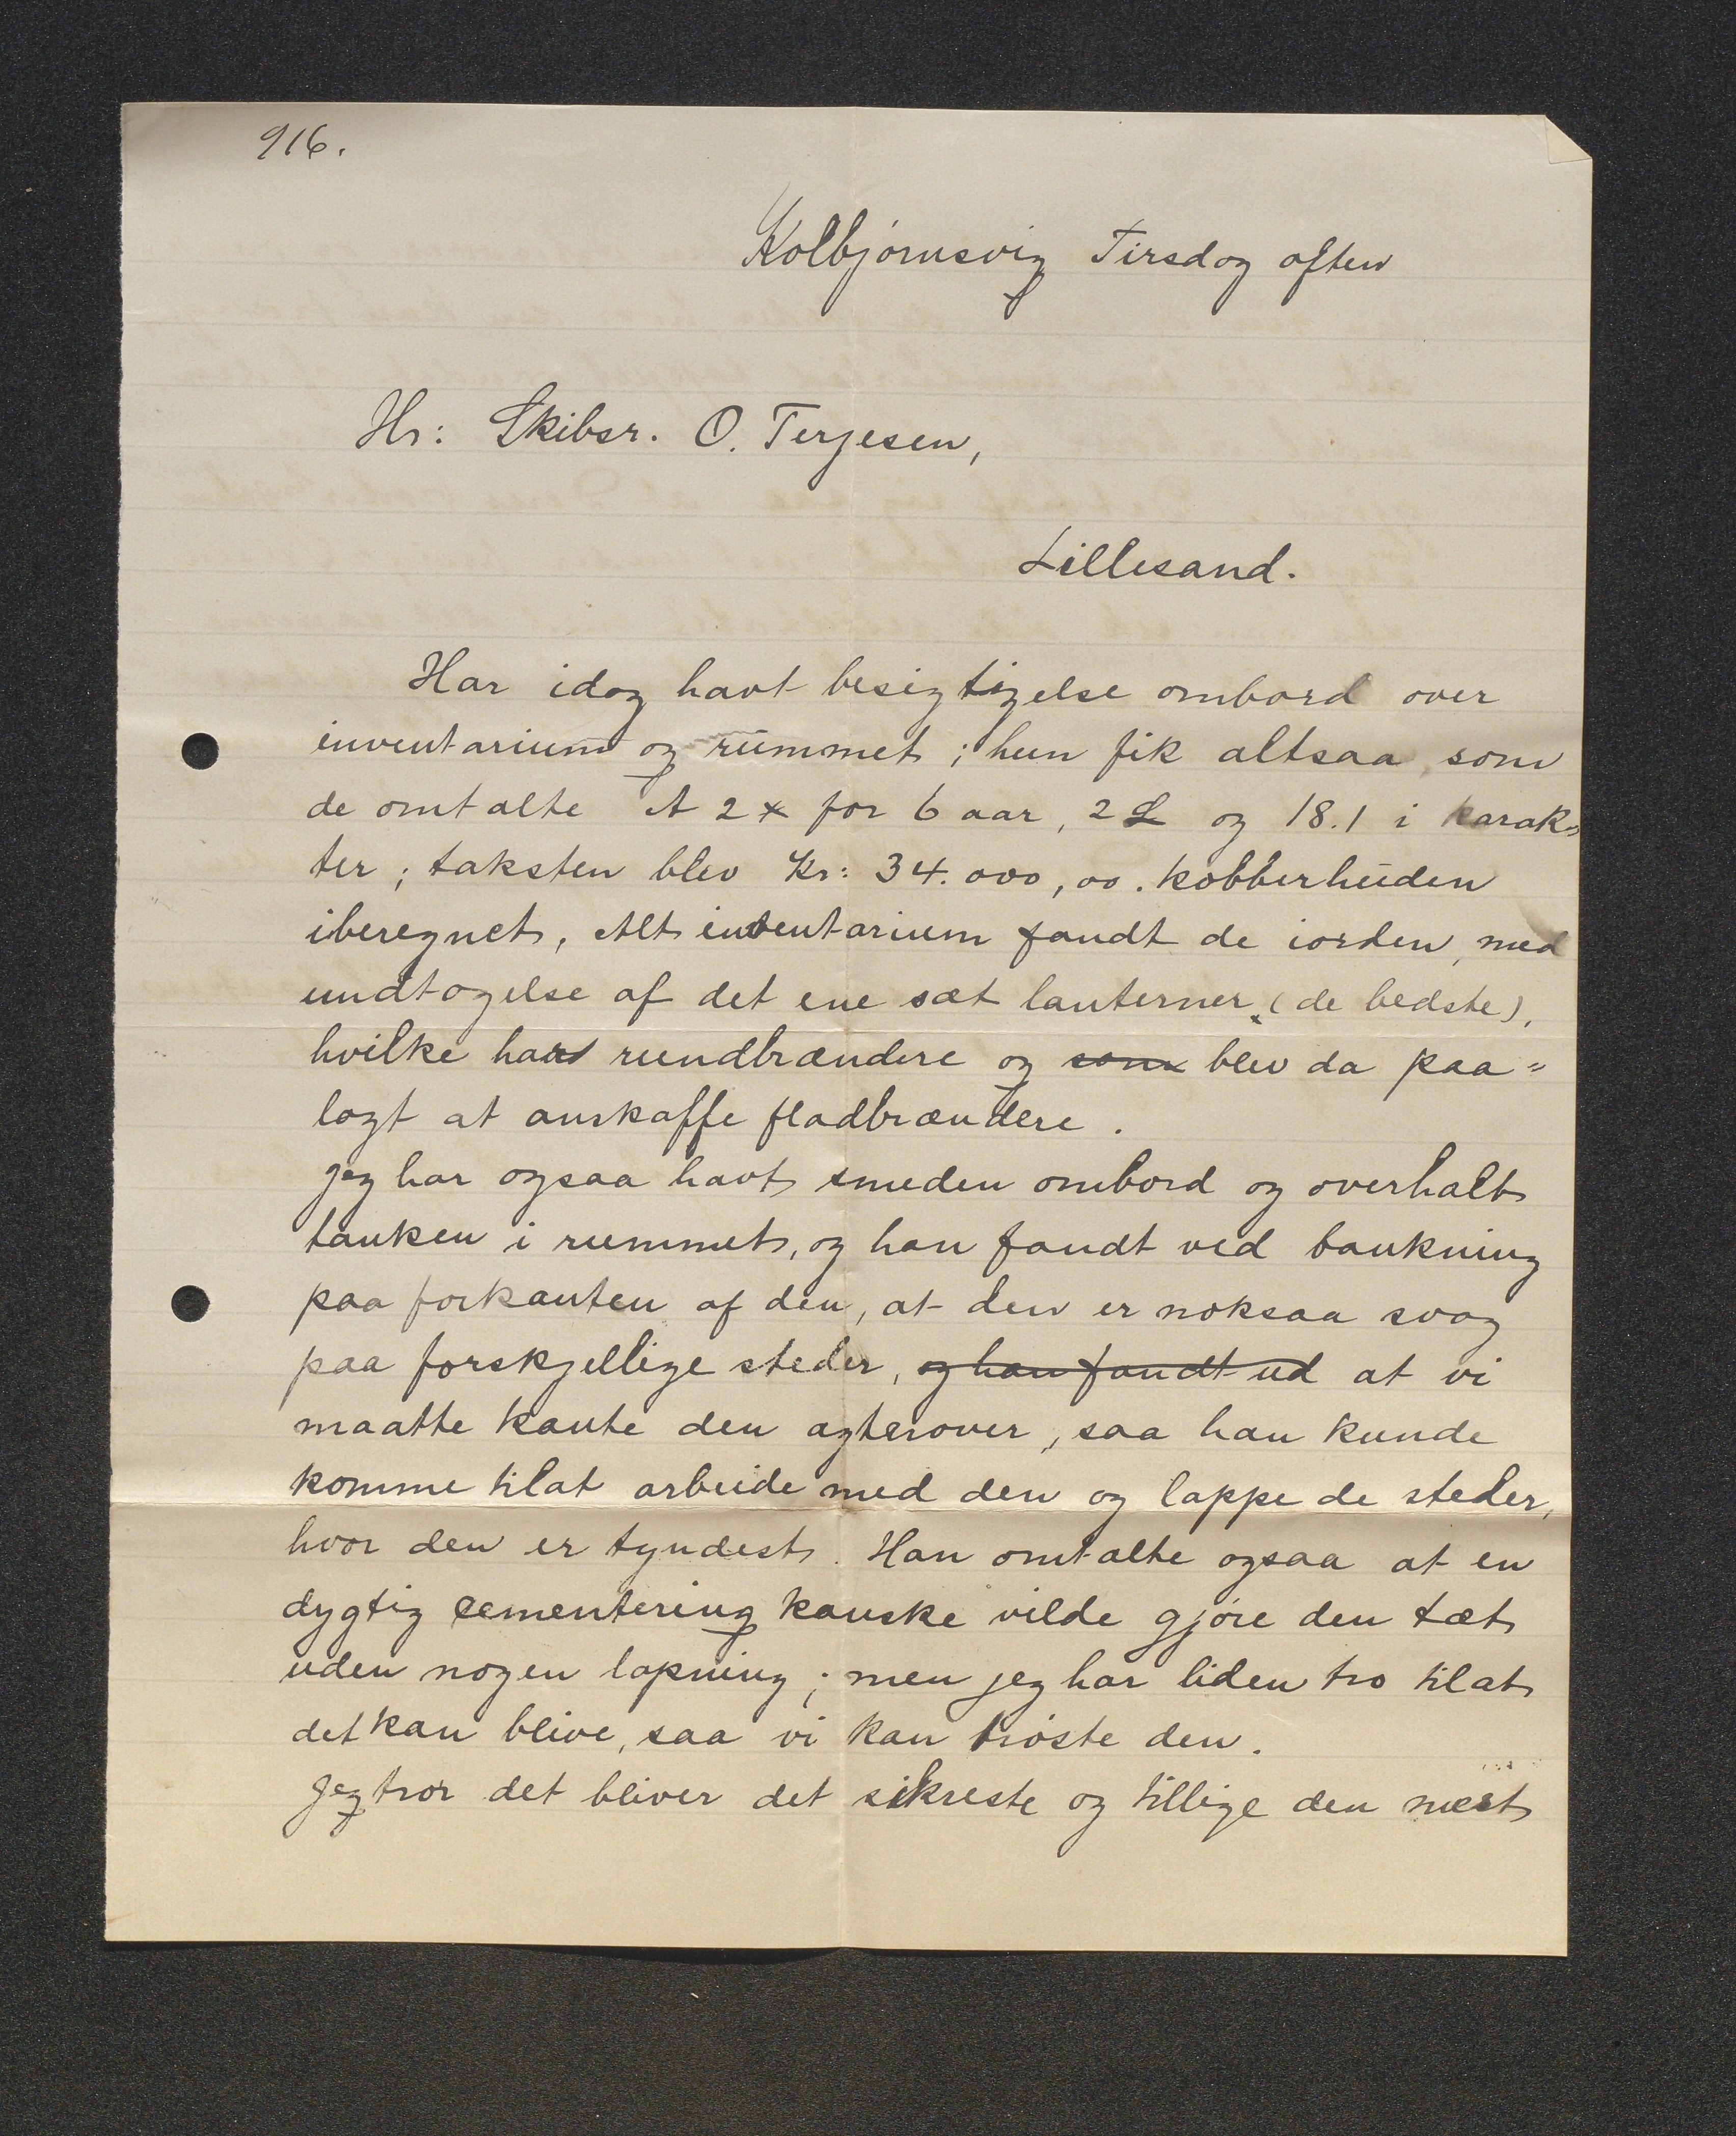 916.
Kolbjørnsvig Tirsdag aften
Hr: Skibsr. O. Terjesen,
Lillesand.
Har idag havt besigtigelse ombord over
inventarium og rummet; hun fik altsaa som
de omtalte A 2 x for 6 aar, 2 L og 18.1 i karak=
ter; taksten blev Kr: 34.000,00. kobberhuden
iberegnet, Alt inventarium fandt de iorden, med
undtagelse af det ene sæt lanterner, (de bedste),
hvilke har rundbrændere og som blev da paa=
lagt at anskaffe fladbrændere.
Jeg har ogsaa havt smeden ombord og overhalt
tanken i rummet, og han fandt ved bankning
paa forkanten af den, at den er noksaa svag
paa forskjellige steder, og han fandt ud at vi
maatte kante den agterover, saa han kunde
komme tilat arbeide med den og lappe de steder,
hvor den er tyndest. Han omtalte ogsaa at en
dygtig cementering kanske vilde gjøre den tæt
uden nogen lapning; men jeg har liden tro tilat
det kan blive, saa vi kan trøste den.
Jeg tror det bliver det sikreste og tillige den mest